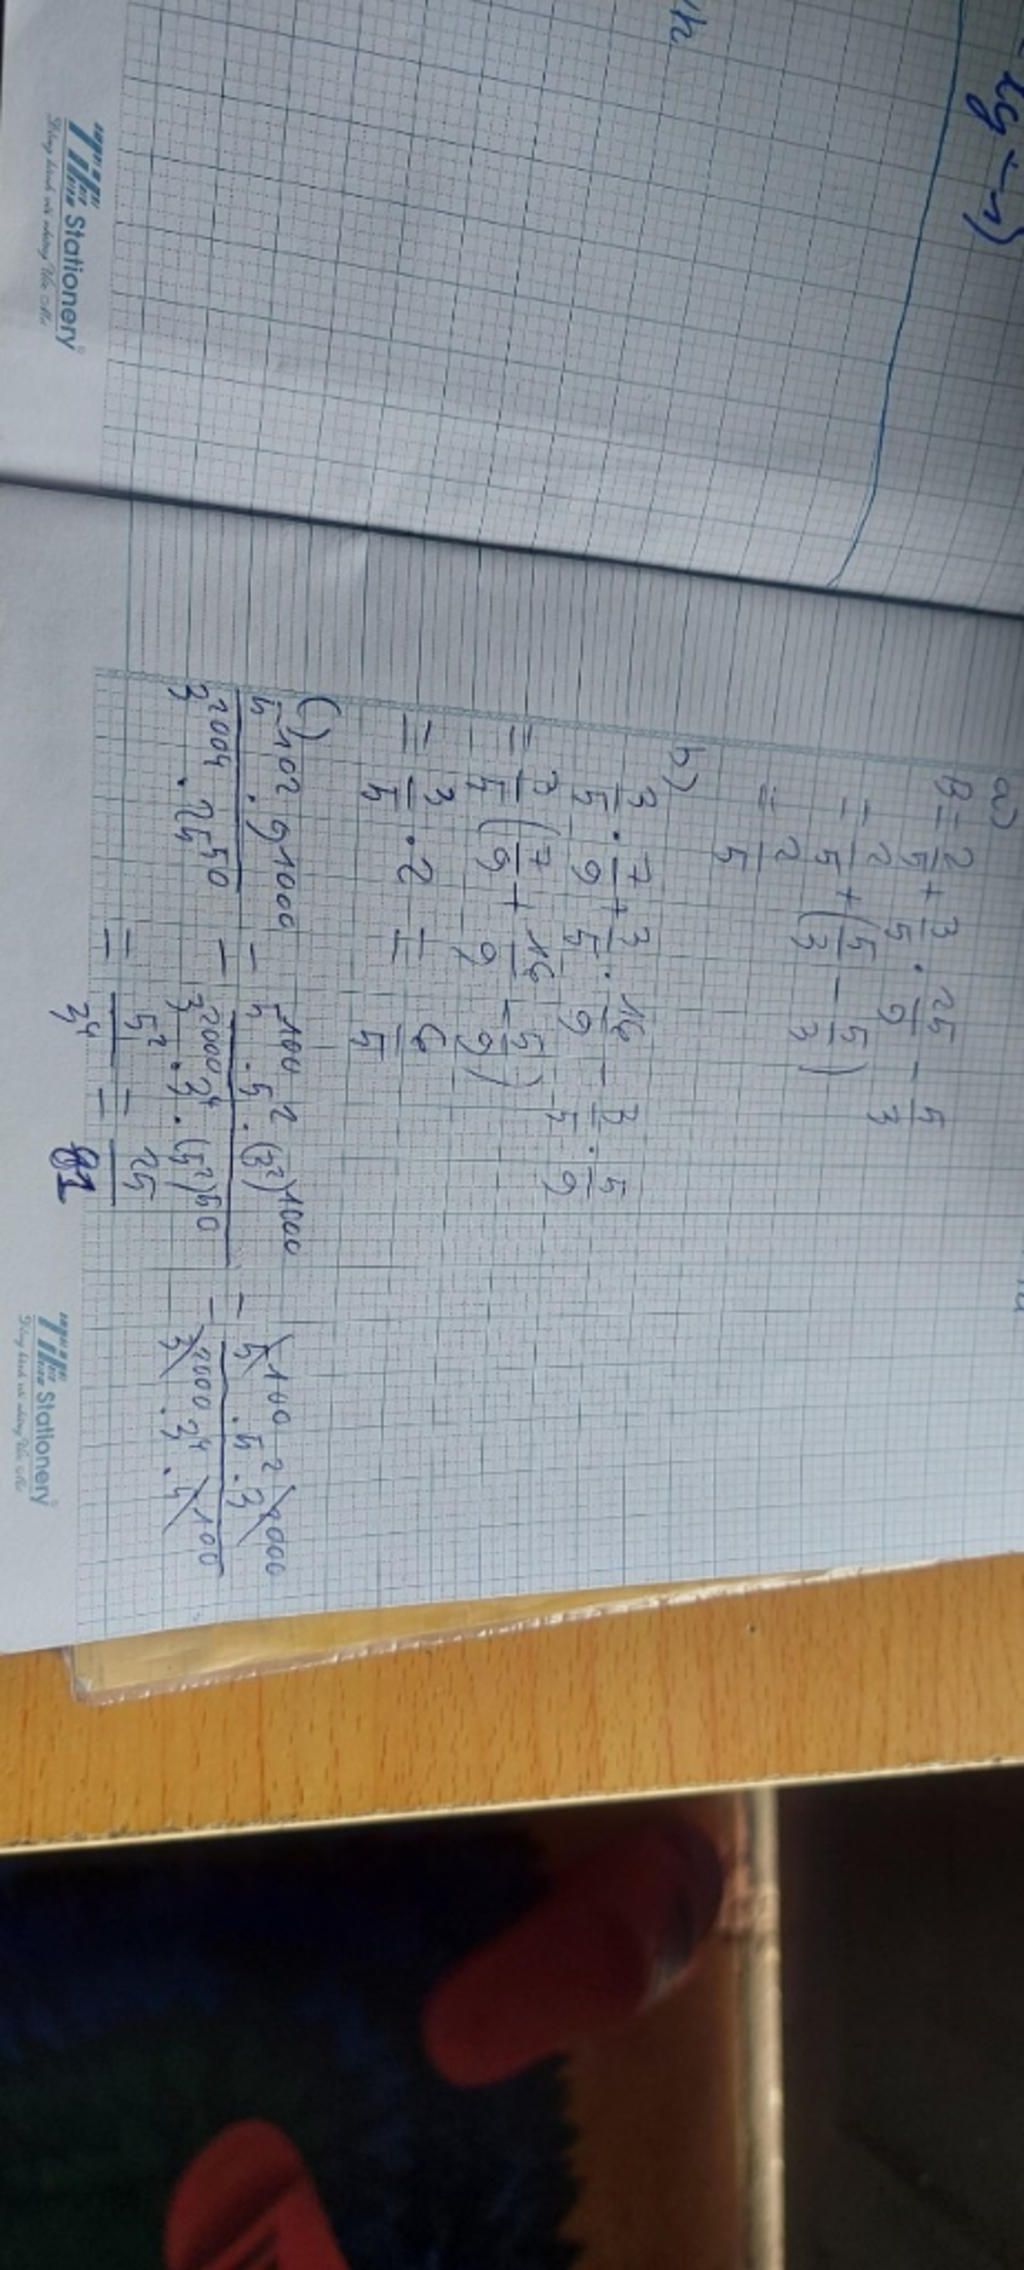 a)
B = 2/5 + 3/5 . 25/9 - 5/3
= 2/5 + (5/3 - 5/3)
= 2/5
b)
3/5 . 7/9 + 3/5 . 16/9 - 3/5 . 5/9
= 3/5 (7/9 + 16/9 - 5/9)
= 3/5 . 2 = 6/5
c) 5^102 . 9^1000 / 3^2004 . 25^50 = 5^100 . 5^2 . (3^2)^1000 / 3^2000 . 3^4 . (5^2)^50 = 5^100 . 5^2 . 3^2000 / 3^2000 . 3^4 . 5^100
= 5^2 / 3^4 = 25 / 81
Stationery
Stationery